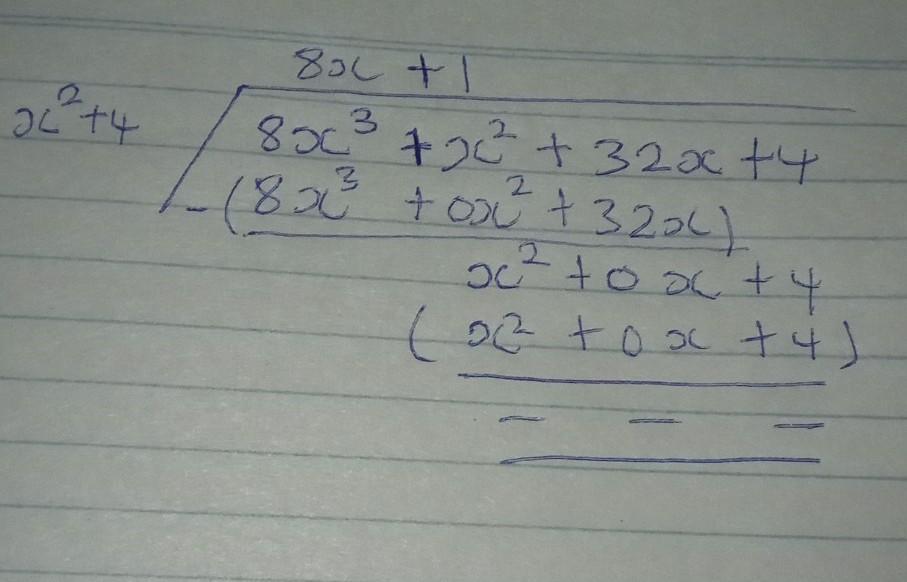 8x + 1
x² + 4
8x³ + x² + 32x + 4
-(8x³ + 0x² + 32x)
x² + 0x + 4
(x² + 0x + 4)
- - -